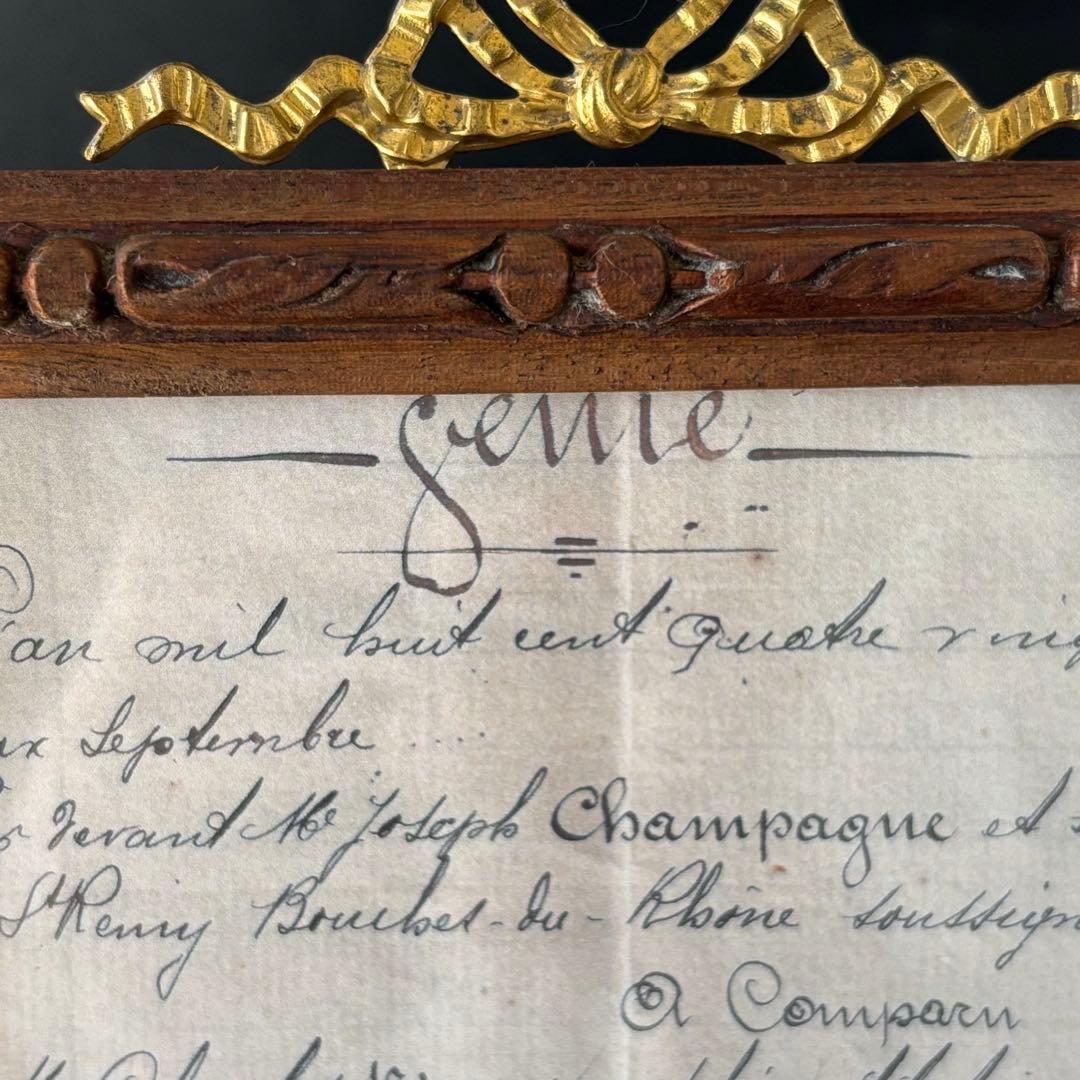 génie
L'an mil huit cent Quatre ving
ux Septembre .....
devant Me Joseph Champagne et
St Remy Bouches-du-Rhône soussign
A Comparu